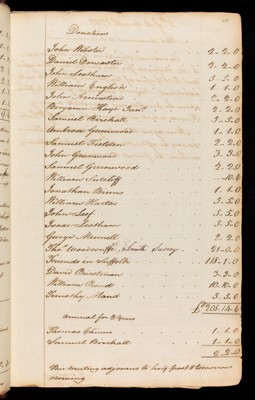 Donations
John Webster 2-2.0
Daniel Doncaster 2.2.0
John Leatham 5-5.0
William English 1.1.0
John Armistead 2-2.0
Benjamin Kaye Junr. 2.2.0
Samuel Birchall 5-5.0
Ambrose Greenwood 1-1.0
Samuel Fielden 2.2.0
John Greenwood 3.3.0
Samuel Greenwood 2.2.0
William Sutcliff -10.6
Jonathan Binns 1.1.0
William Hustler 5.5.0
John 5.5.0
Isaac Leatham 5.5.0
George Mennell 2.2.0
Thos. South Surry 21-0.0
Friends in Suffolk 118.1.0
David Priestman 3.3.0
William Proud 10.10.0
Timothy Maud 5.5.0
£205.14.6
Annual for 3 Years
Thomas 1.1.0
Samuel Birchall 1-1.0
2.2.0
This meeting adjourns to half past 8 tomorrow
morning